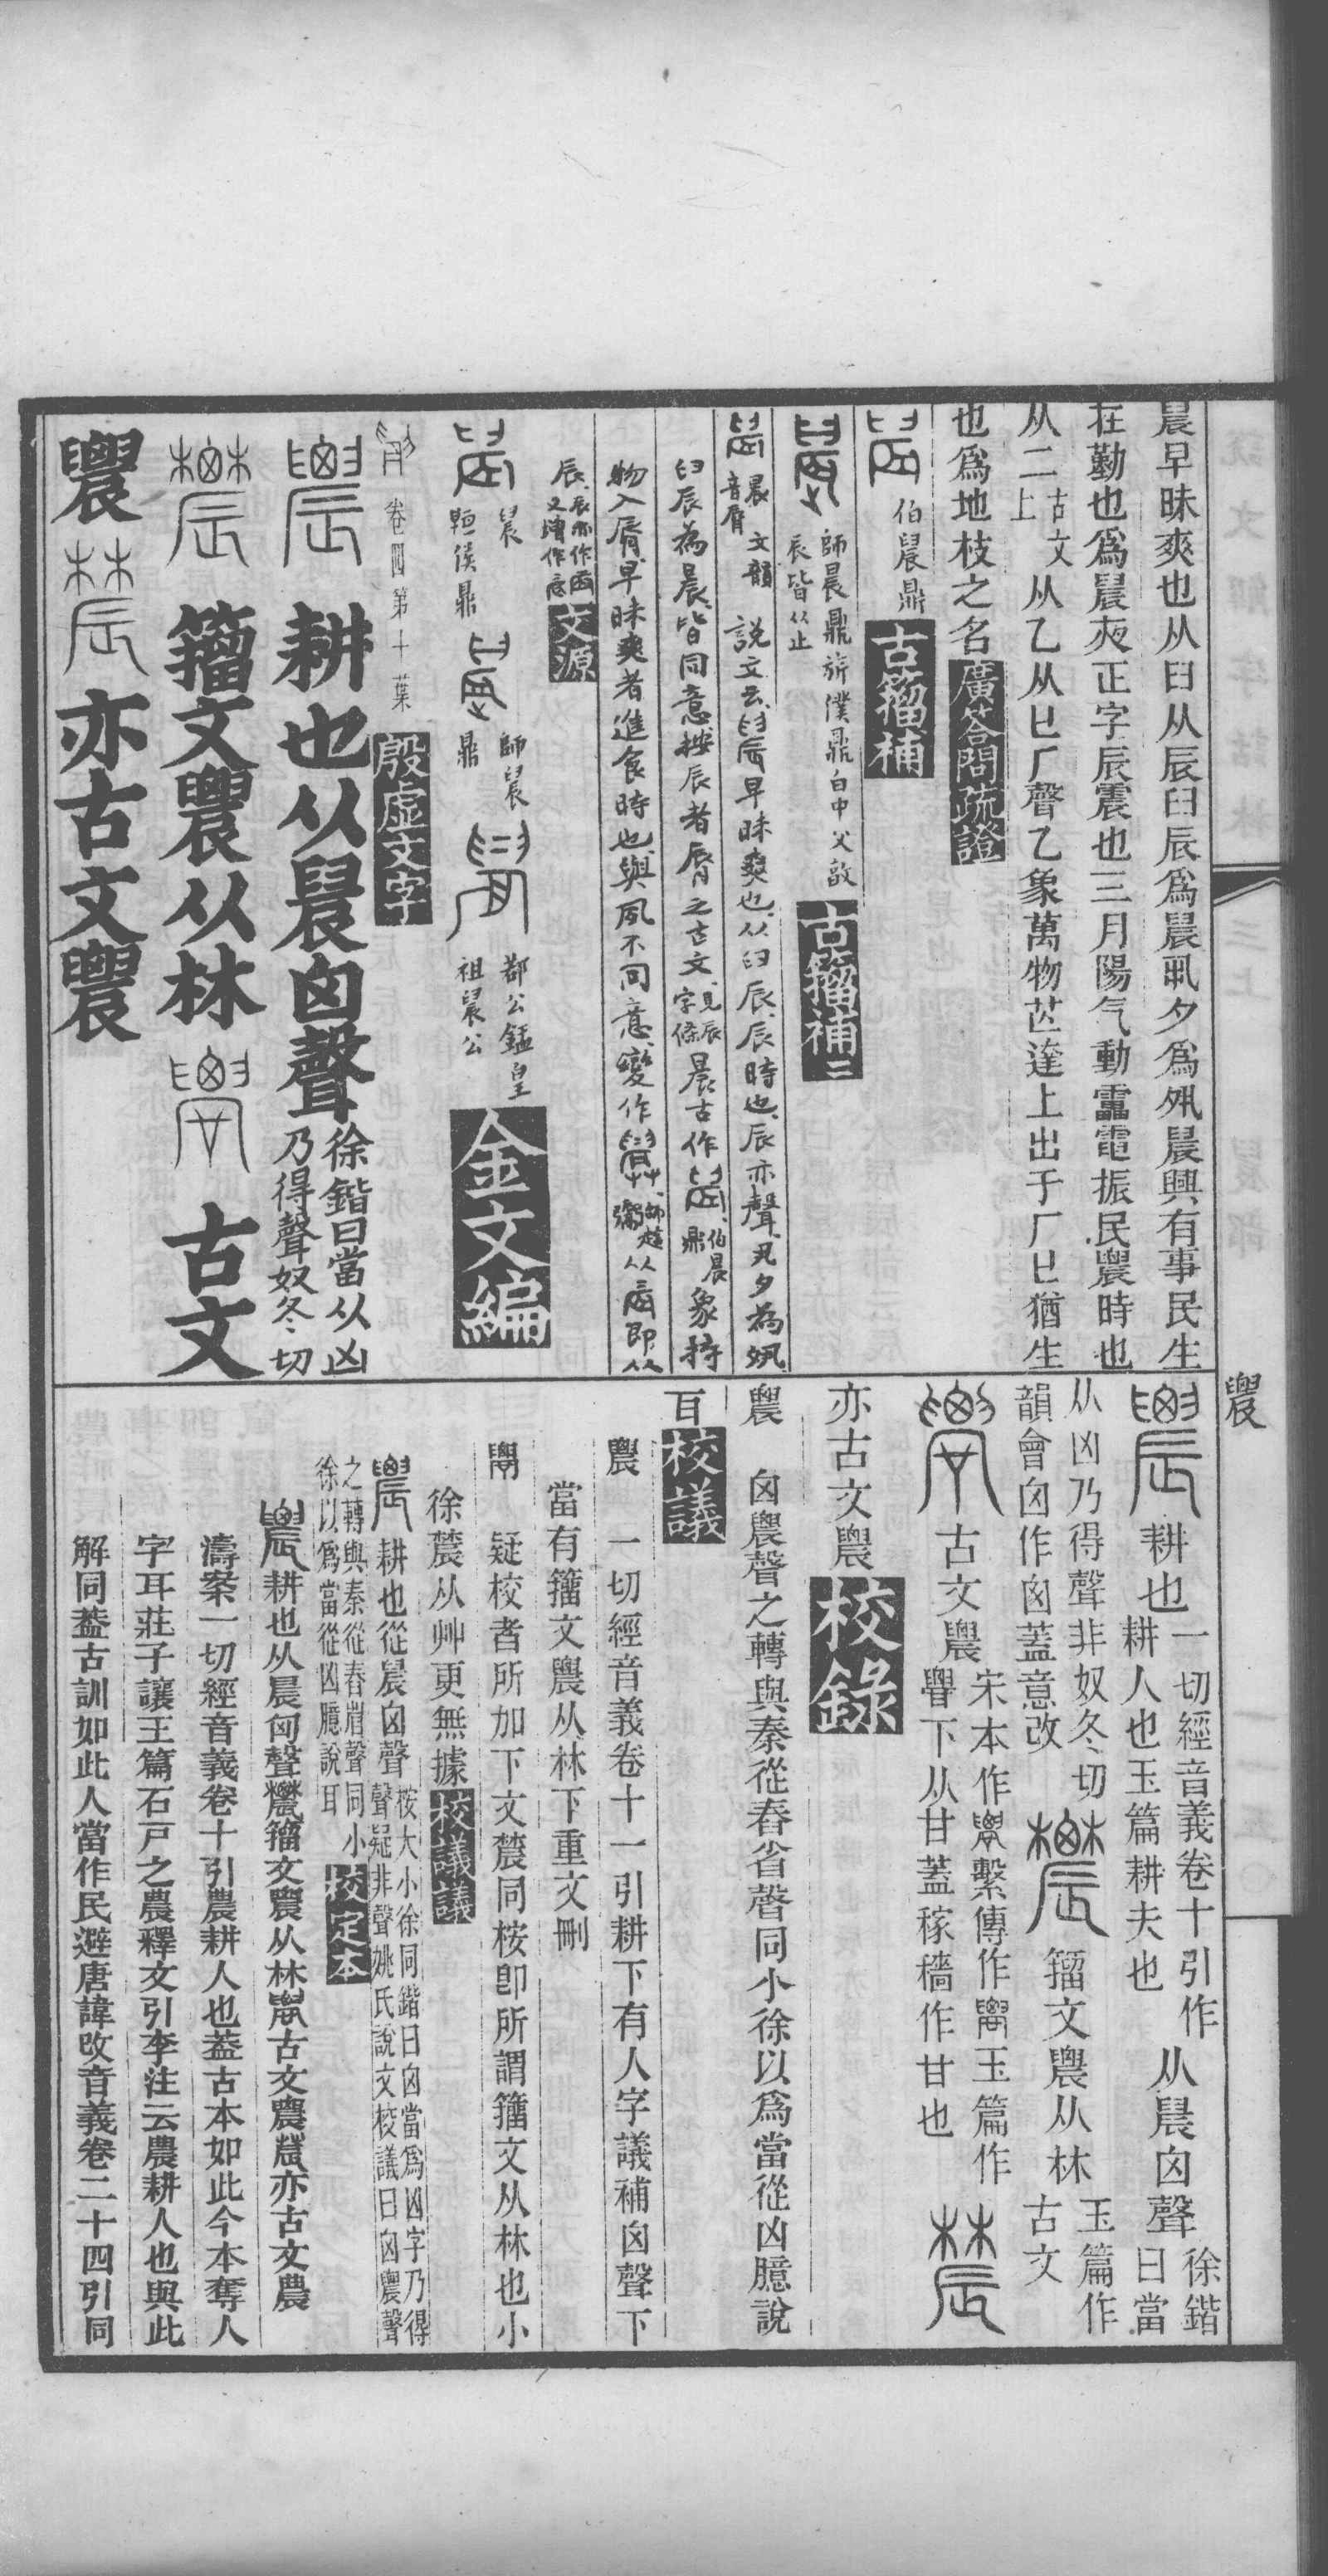 晨早昧爽也从臼从辰臼辰爲晨丮夕爲夙晨興有事民生
在勤也爲晨夾正字辰震也三月陽气動靁電振民農時也
从二古文上从乙从匕厂聲乙象萬物芒達上出于厂匕猶生
也爲地枝之名廣答問疏證
伯晨鼎 古籀補
師晨鼎旂僕鼎白中父敦辰皆从止 古籀補二
晨音脣 文韻 說文云晨早昧爽也从臼辰辰時也辰亦聲丮夕為夙
臼辰為晨皆同意按辰者脣之古文見辰字條晨古作伯晨鼎象持
物入脣早昧爽者進食時也與夙不同意變作師趛
辰 文源
晨 䡅侯鼎 師晨鼎 鄀公𨥏皇祖晨公 金文編
卷四第十葉 殷虛文字
農 耕也从晨囟聲徐鍇曰當从凶乃得聲奴冬切
籀文農从林 古文
農 亦古文農
農
農 耕也一切經音義卷十引作耕人也玉篇耕夫也 从晨囟聲徐鍇曰當
从凶乃得聲非奴冬切韻會囟作囪蓋意改 籀文農从林玉篇作古文
古文農宋本作繫傳作玉篇作下从甘蓋稼穡作甘也
亦古文農 校錄
農 囟農聲之轉與秦從舂省聲同小徐以爲當從凶臆說
耳校議
農 一切經音義卷十一引耕下有人字議補囟聲下
當有籀文農从林下重文刪
疑校者所加下文䢉同桉即所謂籀文从林也小
徐䢉从艸更無據校議議
農 耕也從晨囟聲桉大小徐同鍇曰囟當爲凶字乃得聲疑非聲姚氏說文校議曰囟農聲
之轉與秦從舂省聲同小徐以爲當從凶臆說耳 校定本
農耕也从晨囟聲籀文農从林古文農亦古文農
濤案一切經音義卷十引農耕人也蓋古本如此今本奪人
字耳莊子讓王篇石戸之農釋文引李注云農耕人也與此
解同蓋古訓如此人當作民避唐諱改音義卷二十四引同